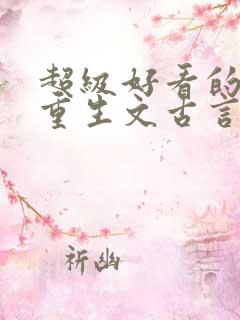 超级好看的
重生文古言
祈幽